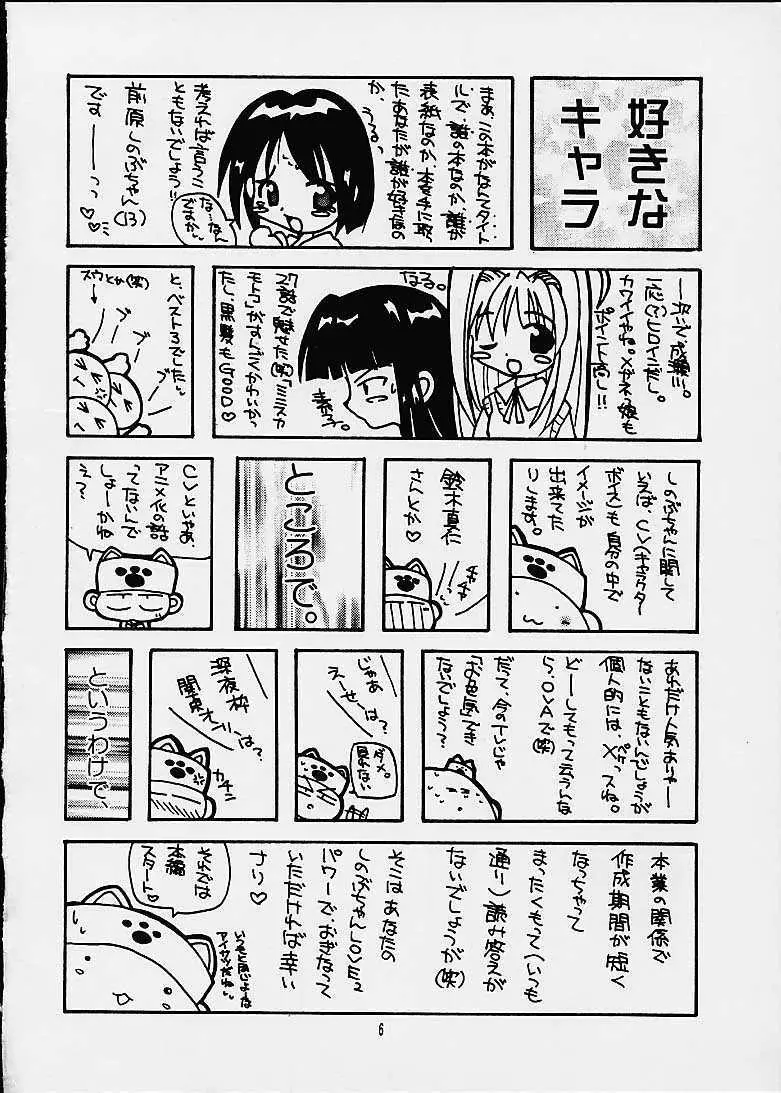 好きな
キャラ
まぁ、この本がなんてタイト
ルで、誰の本なのか、誰が
表紙なのか、本を手に取っ
たあなたが誰が好きなの
か、
うるっ
考えれば言うこ
ともないでしょう!!
なーなん
ですかぁ
前原しのぶちゃん(13)
ですーーっっ♡♡
一次いで、成瀬川。
一応(?)ヒロインだし。
カワイイやね。メガネっ娘も
ポイント高し!!
なる。
素子。
27話で魅せた(笑)「ミニスカ
モトコ」がすんごくかわいかっ
たし、黒髪もGOOD♡
と、ベスト3でした
スウとか(笑)
ブ
ブ
ブ
しのぶちゃんに関して
いえば、CV(キャラクター
ボイス)も自分の中で
イメージが
出来てた
りします。
鈴木真仁
さんとか♡
ところで。
CVといやぁ、
アニメ化の話
ってないんで
しょーかね
ぇ?
あれだけ人気ありゃー
ないこともないんでしょうが
個人的には、ペケっスね。
どーしてもって云うんな
ら、OVAで(笑)
だって、今のTVじゃ
「お色気」でき
ないでしょう?
じゃあ
えーせーは?
ダメ。
見れない
深夜枠
関東オンリーは?
カチン
というわけで、
本業の関係で
作成期間が短く
なっちゃって
まったくもって(いつも
通り)読み答えが
ないでしょうが(笑)
そこはあなたの
しのぶちゃんLOVE2
パワーで、おぎなって
いただければ幸い
ナリ♡
それでは
本編
スタート♡
いつもと同じよーな
アイサツだねぃ
6